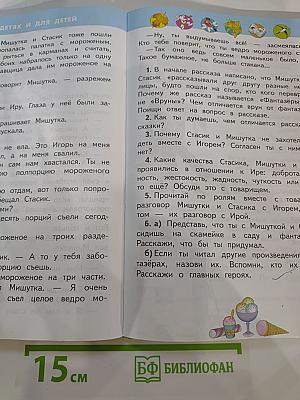 ДЕТЯХ И ДЛЯ ДЕТЕЙ
Мишутка и Стасик тоже пошли
палатка с мороженым,
рыться в карманах и считать,
обоих набралось только на одну
давщица дала им мороженое на
говорит Мишутка, — разрежем
Иру. Глаза у неё были за-
рашивает Мишутка.
пускала.
не ела. Это Игорь на меня
л, а на меня свалил.
сам нам хвастался. Ты не
полпорцию мороженого
отдам, вот только попро-
ещал Стасик.
десять порций съели сегод-
оженое на троих разде-
Стасик. — А то у тебя забо-
порцию съешь.
мороженое на три части.
ил Мишутка. — Я очень
съел целое ведро мо-
— Ну, ты выдумываешь всё! — засмеялась
Кто тебе поверит, что ты ведро мороженого с
— Так оно ведь совсем маленькое было,
Такое бумажное, не больше стакана...
1. В начале рассказа написано, что Мишутка
Стасик «рассказывали друг другу разные не
лицы, будто пошли на спор, кто кого переврё
Почему же рассказ называется «Фантазёры»
не «Вруны»? Чем отличается врун от фантаз
Поищи ответ на вопрос в рассказе.
2. Как ты думаешь, чем отличается рассказ
сказки?
3. Почему Стасик и Мишутка не захотели
деть вместе с Игорем? Согласен ты с ним
нет?
4. Какие качества Стасика, Мишутки и
проявились в отношении к Ире: доброта,
ность, жестокость, жадность, чуткость или
то ещё? Обсуди это с товарищем.
5. Прочитай по ролям вместе с товар
разговор Мишутки и Стасика с Игорем,
том — их разговор с Ирой.
6. а) Представь, что ты с Мишуткой и С
сидишь на скамейке в саду и фантаз
Расскажи, что бы ты придумал.
б) Если ты читал другие произведения
тазёрах, назови их. Вспомни, кто их
Расскажи о главных героях.
15 см
БФ БИБЛИОФАН